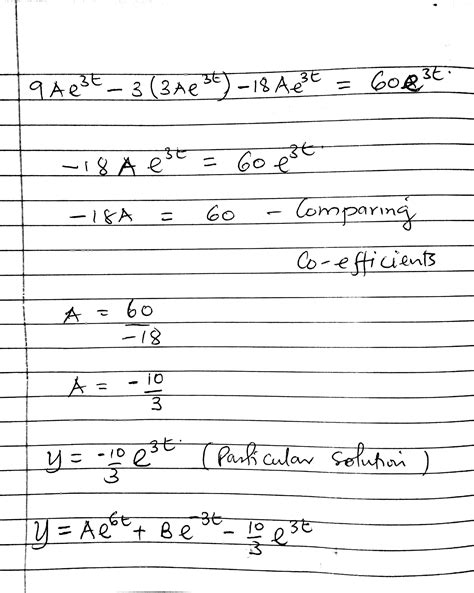 9Ae^3t − 3(3Ae^3t) − 18Ae^3t = 60e^3t.
−18Ae^3t = 60e^3t.
−18A = 60 − Comparing
Co-efficients
A = 60/−18
A = −10/3
y = −10/3 e^3t. (Particular solution)
y = Ae^6t + Be^−3t − 10/3 e^3t